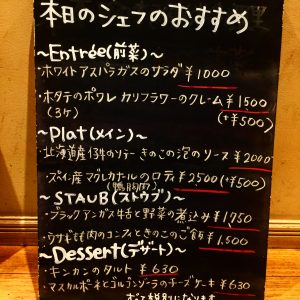 本日のシェフのおすすめ
〜Entrée(前菜)〜
・ホワイトアスパラガスのサラダ ¥1000
・ホタテのポワレ カリフラワーのクレーム ¥1500
(3ヶ) (+¥500)
〜Plat(メイン)〜
・北海道産仔牛のソテー きのこの泡のソース ¥2000
・スペイン産マグレカナールのロティ ¥2500(+¥500)
(鴨胸肉)
〜STAUB(ストウブ)〜
・ブラックアンガス牛舌と野菜の煮込み ¥1750
・ウサギもも肉のコンフィときのこのご飯 ¥1.500
〜Dessert(デザート)〜
・キンカンのタルト ¥630
・マスカルポーネとゴルゴンゾーラのチーズケーキ ¥630